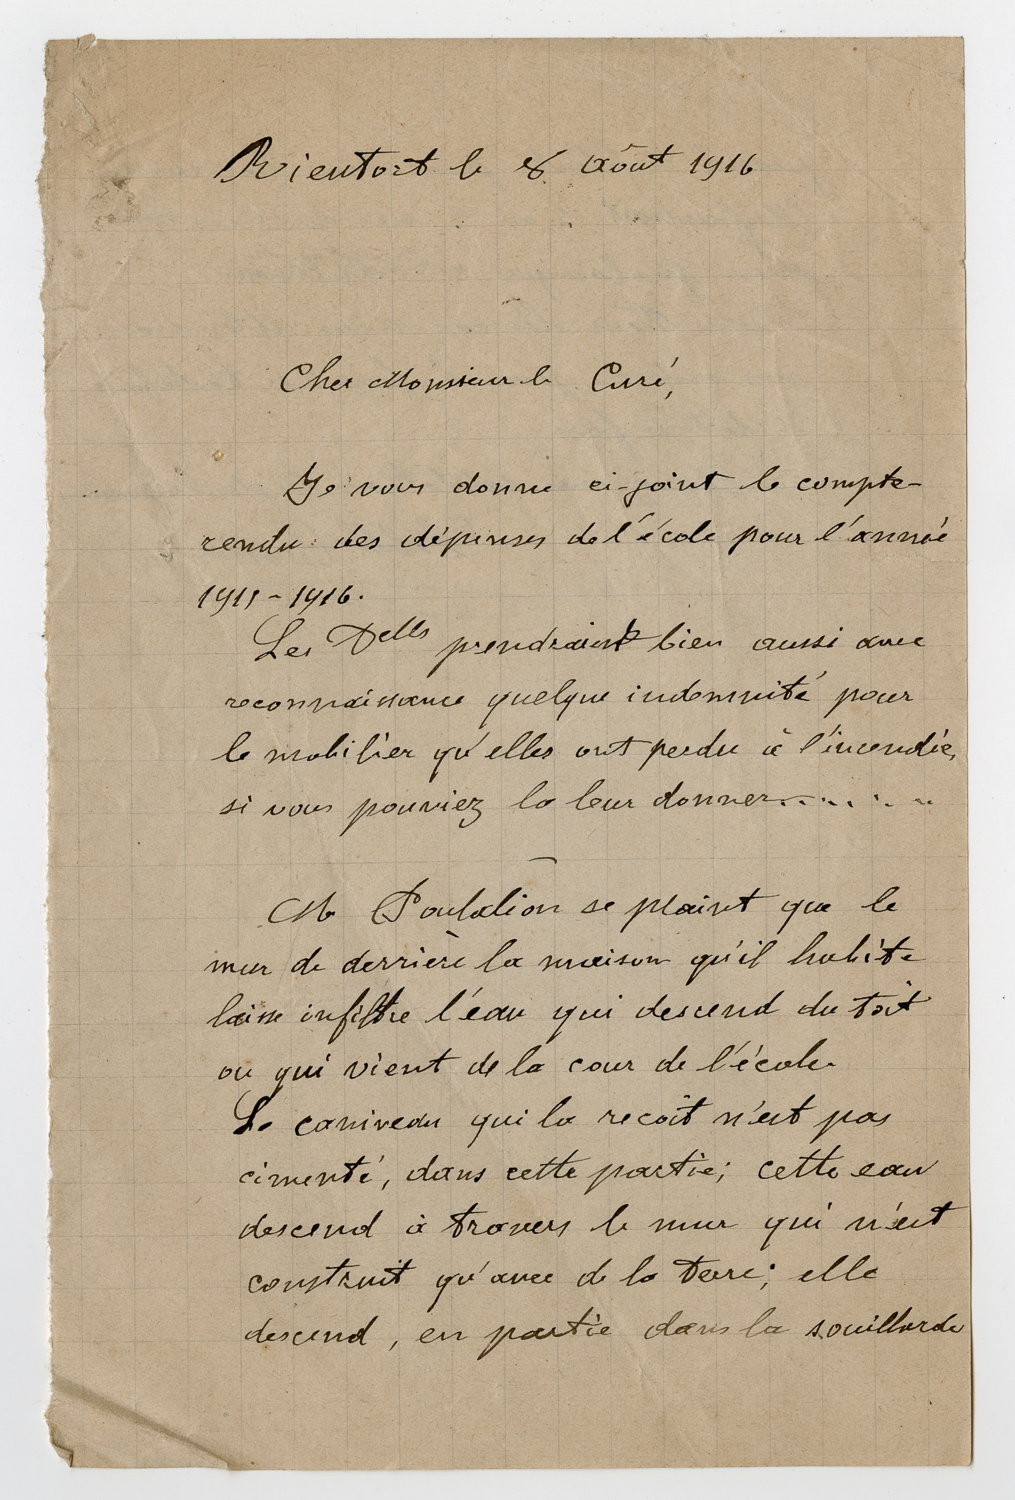 Rientort le 8 Août 1916
Cher Monsieur le Curé,
Je vous donne ci-joint le compte-
rendu des dépenses de l'école pour l'année
1915-1916.
Les Delles prendraient bien aussi avec
reconnaissance quelque indemnité pour
le mobilier qu'elles ont perdu à l'incendie,
si vous pouviez la leur donner........
Mr Poulalion se plaint que le
mur de derrière la maison qu'il habite
laisse infiltre l'eau qui descend du toît
ou qui vient de la cour de l'école.
Le caniveau qui la reçoit n'est pas
cimenté, dans cette partie; cette eau
descend à travers le mur qui n'est
construit qu'avec de la terre; elle
descend, en partie dans la souillarde